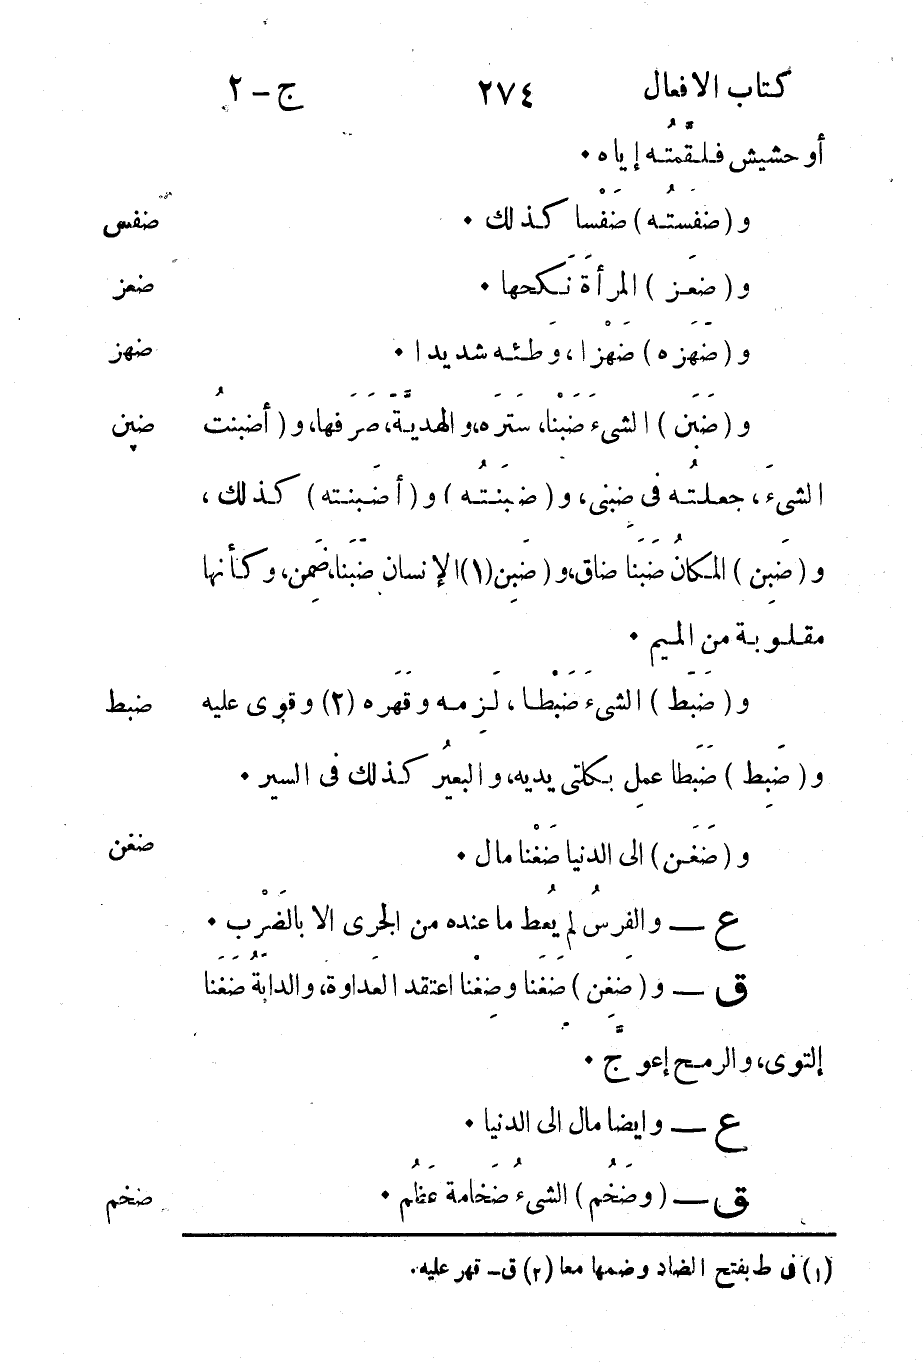 كتاب الافعال ٢٧٤ ج – ٢
أو حشيش فلقَّمتُه إياه ٠
و ( ضفَستُه ) ضَفْسا كذلك ٠ ضفس
و ( ضعَز ) المرأةَ نَكحها ٠ ضعز
و ( ضَهَزه ) ضَهْزا ، وَطئه شديدا ٠ ضهز
و ( ضَبَن ) الشىءَ ضَبْنا، سَتَره، والهديّةَ، صَرَفها، و ( أضبنتُ ضبن
الشىءَ ، جعلتُه فى ضِبنى، و ( ضبَنتُه ) و ( أضبَنته ) كذلك ،
و ( ضَبِن ) المكانُ ضَبَنا ضاق، و ( ضَبِن (١) الإنسان ضَبَنا، ضَمِن، وكأنها
مقلوبة من الميم ٠
و ( ضَبَط ) الشىءَ ضَبْطا ، لَزِمه وقَهَره (٢) وقوى عليه ضبط
و ( ضَبِط ) ضَبَطا عمِل بكلتى يديه، والبعيرُ كذلك فى السير ٠
و ( ضَغَن ) الى الدنيا ضَغْنا مال ٠ ضغن
ع — والفرسُ لم يُعط ما عنده من الجرى الا بالضَرْب ٠
ق — و ( ضغِن ) ضَغَنا وضِغْنا اعتقد العَداوة، والدابّةُ ضَغَنا
إلتوى، والرمح إعوجَّ ٠
ع — وايضا مال الى الدنيا ٠
ق — ( وضَخُم ) الشىءُ ضَخامة عَظُم ٠ ضخم
(١) فى ط بفتح الضاد وضمها معا (٢) ق – قهر عليه.